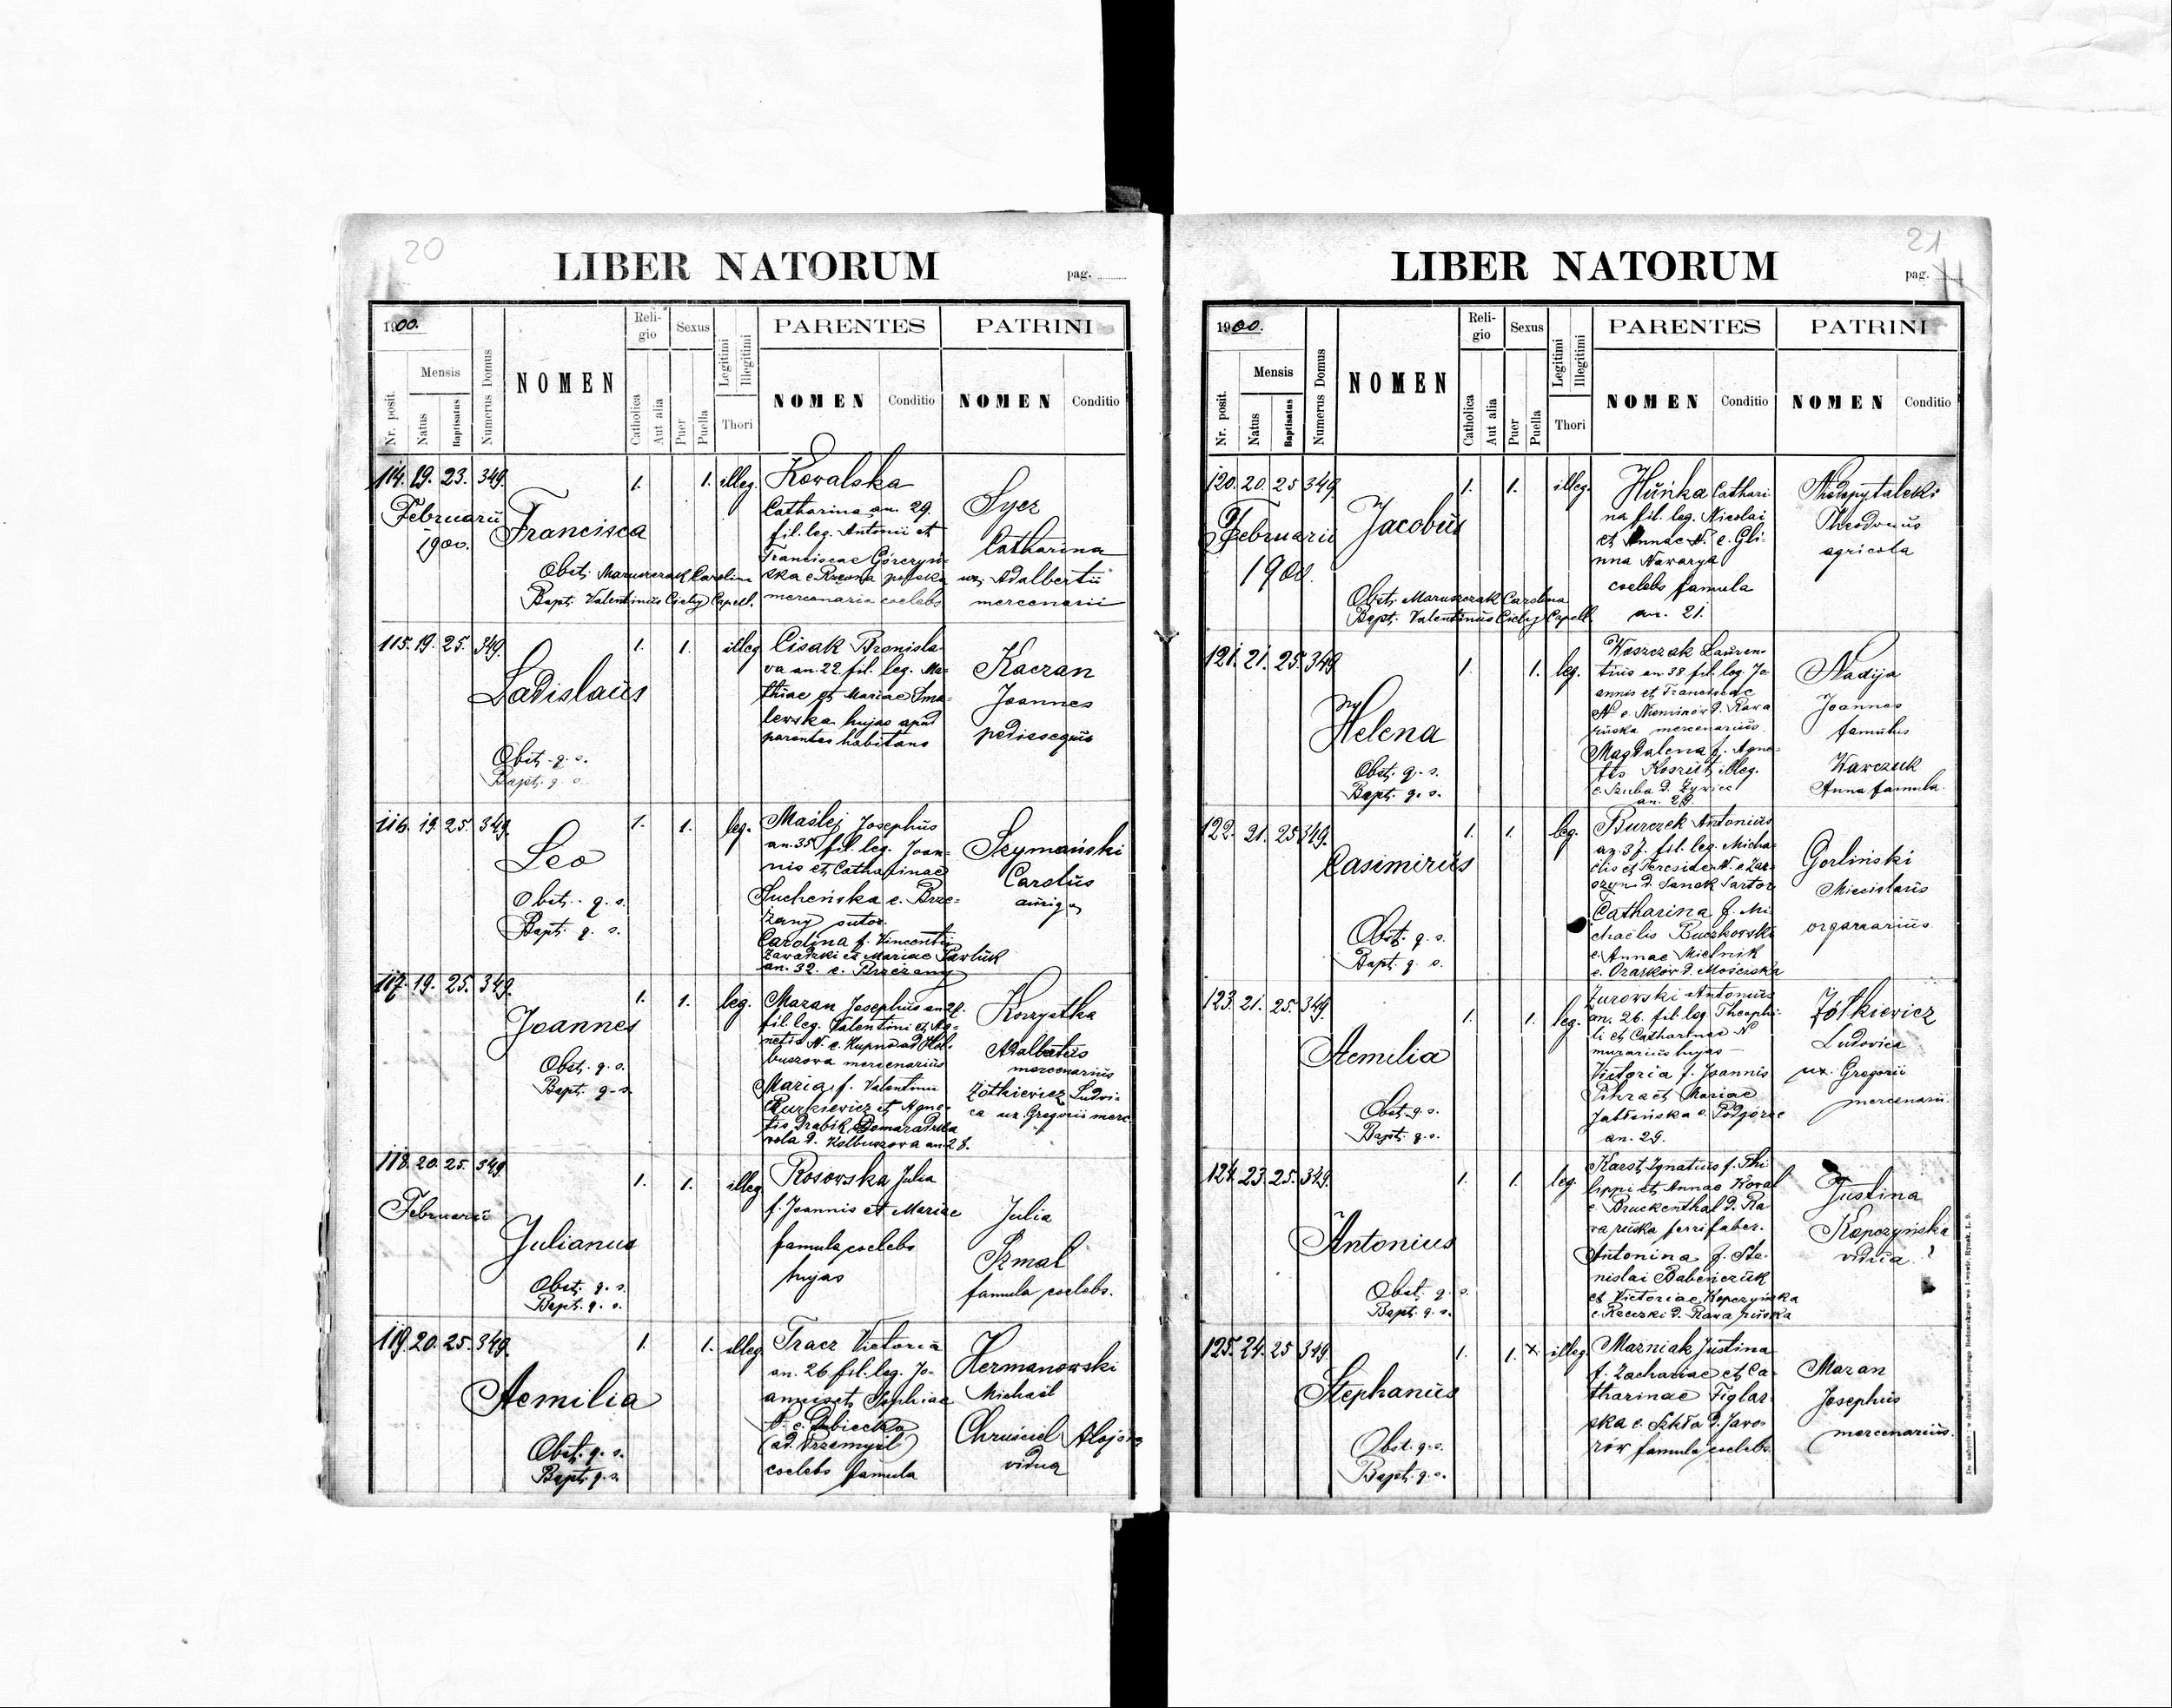 20
LIBER NATORUM
pag.
1900.
Nr. posit.
Mensis
Natus
Baptisatus
Numerus Domus
NOMEN
Reli-
gio
Catholica
Aut alia
Sexus
Puer
Puella
Legitimi
Illegitimi
Thori
PARENTES
NOMEN
Conditio
PATRINI
NOMEN
Conditio
114. 19. 23. 349.
Februarii
1900.
Francisca
Obst. Maruszczak Carolina
Bapt. Valentinus Cichy Capell.
1. 1. illeg.
Kowalska
Catharina an. 29.
fil. leg. Antonii et
Franciscae Górczyń-
ska e
mercenaria coelebs
Sycz
Catharina
ux. Adalberti
mercenarii
115. 19. 25. 349.
Ladislaus
Obst. q. s.
Bapt. q. s.
1. 1. illeg
Cisak Bronisla-
va an. 22. fil. leg. Ma-
thiae et Mariae Sma-
lewska hujas apud
parentes habitans
Kaczan
Joannes
pedissequus
116. 19. 25. 349.
Leo
Obst. q. s.
Bapt. q. s.
1. 1. leg.
Maślej Josephus
an. 35 fil. leg. Joan-
nis et Catharinae
Sucheńska e. Brze-
żany sutor
Carolina f. Vincentii
Zawadzki et Mariae Pawluk
an. 32. e. Brzeżany
Szymański
Carolus
auriga
117. 19. 25. 349.
Joannes
Obst. q. s.
Bapt. q. s.
1. 1. leg.
Mazan Josephus an 27.
fil. leg. Valentini et Ag-
netis N. e. Kupno ad Kol-
buszowa mercenarius
Maria f. Valentini
et Agne-
tis Drabik
vola d. Kolbuszowa an 28.
Korzystka
Adalbertus
mercenarius
Żółkiewicz Ludvi-
ca ux. Gregorii merc.
118. 20. 25. 349.
Februarii
Julianus
Obst. q. s.
Bapt. q. s.
1. 1. illeg
Rosowska Julia
f. Joannis et Mariae
famula coelebs
hujas
Julia
Szmal
famula coelebs.
119. 20. 25. 349.
Aemilia
Obst. q. s.
Bapt. q. s.
1. 1. illeg
Tracz Victoria
an. 26 fil. leg. Jo-
annis et Sophiae
N. e. Dubiecko
(ad. Przemyśl)
coelebs famula
Hermanowski
Michaël
Chruściel Aloysia
vidua
21
LIBER NATORUM
pag.
1900.
Nr. posit.
Mensis
Natus
Baptisatus
Numerus Domus
NOMEN
Reli-
gio
Catholica
Aut alia
Sexus
Puer
Puella
Legitimi
Illegitimi
Thori
PARENTES
NOMEN
Conditio
PATRINI
NOMEN
Conditio
120. 20. 25 349.
Februarii
1900.
Jacobus
Obst. Maruszczak Carolina
Bapt. Valentinus Cichy Capell.
1. 1. illeg.
Huńka Cathari-
na fil. leg. Nicolai
et Annae N. e. Gli-
nna Nawarya
coelebs famula
an. 21.
Theodorus
agricola
121. 21. 25. 349
Helena
Obst. q. s.
Bapt. q. s.
1. 1. leg.
Koszczak Lauren-
tius an. 38 fil. leg. Jo-
annis et Franciscae
N. e. Niemirów d. Rawa
ruska mercenarius
Magdalena f. Agne-
tis illeg.
d. Żywiec
an. 29.
Nadija
Joannes
famulus
Kawczuk
Anna famula.
122. 21. 25 349.
Casimirus
Obst. q. s.
Bapt. q. s.
1. 1. leg.
Burczek Antonius
an. 37. fil. leg. Micha-
ëlis et Teresiae N. e Zar-
szyn d. Sanok Sartor
Catharina f. Mi-
chaëlis Buczkowski
et Annae Mielnik
e. d. Mościska
Gorliński
Miecislaus
organarius.
123. 21. 25. 349.
Aemilia
Obst. q. s.
Bapt. q. s.
1. 1. leg.
Żurowski Antonius
an. 26. fil. leg. Theophi-
li et Catharinae N
murarius hujas
Victoria f. Joannis
et Mariae
Jabłońska e. Podgórze
an. 29.
Żółkiewicz
Ludovica
ux. Gregorii
mercenarii.
124. 23. 25. 349.
Antonius
Obst. q. s.
Bapt. q. s.
1. 1. leg.
Karst Ignatius f. Phi-
lippi et Annae Koval
e. Bruckenthal d. Ra-
va ruska ferrifaber.
Antonina f. Sta-
nislai Babeńczuk
et Victoriae Kopczyńska
e. Rzeczki d. Rawa ruska
Justina
Kopczyńska
vidua.
125. 24. 25 349
Stephanus
Obst. q. s.
Bapt. q. s.
1. 1. x illeg
Maźniak Justina
f. Zachariae et Ca-
tharinae Figlar-
ska e. Szkło d. Jawo-
rów famula coelebs.
Mazan
Josephus
mercenarius.